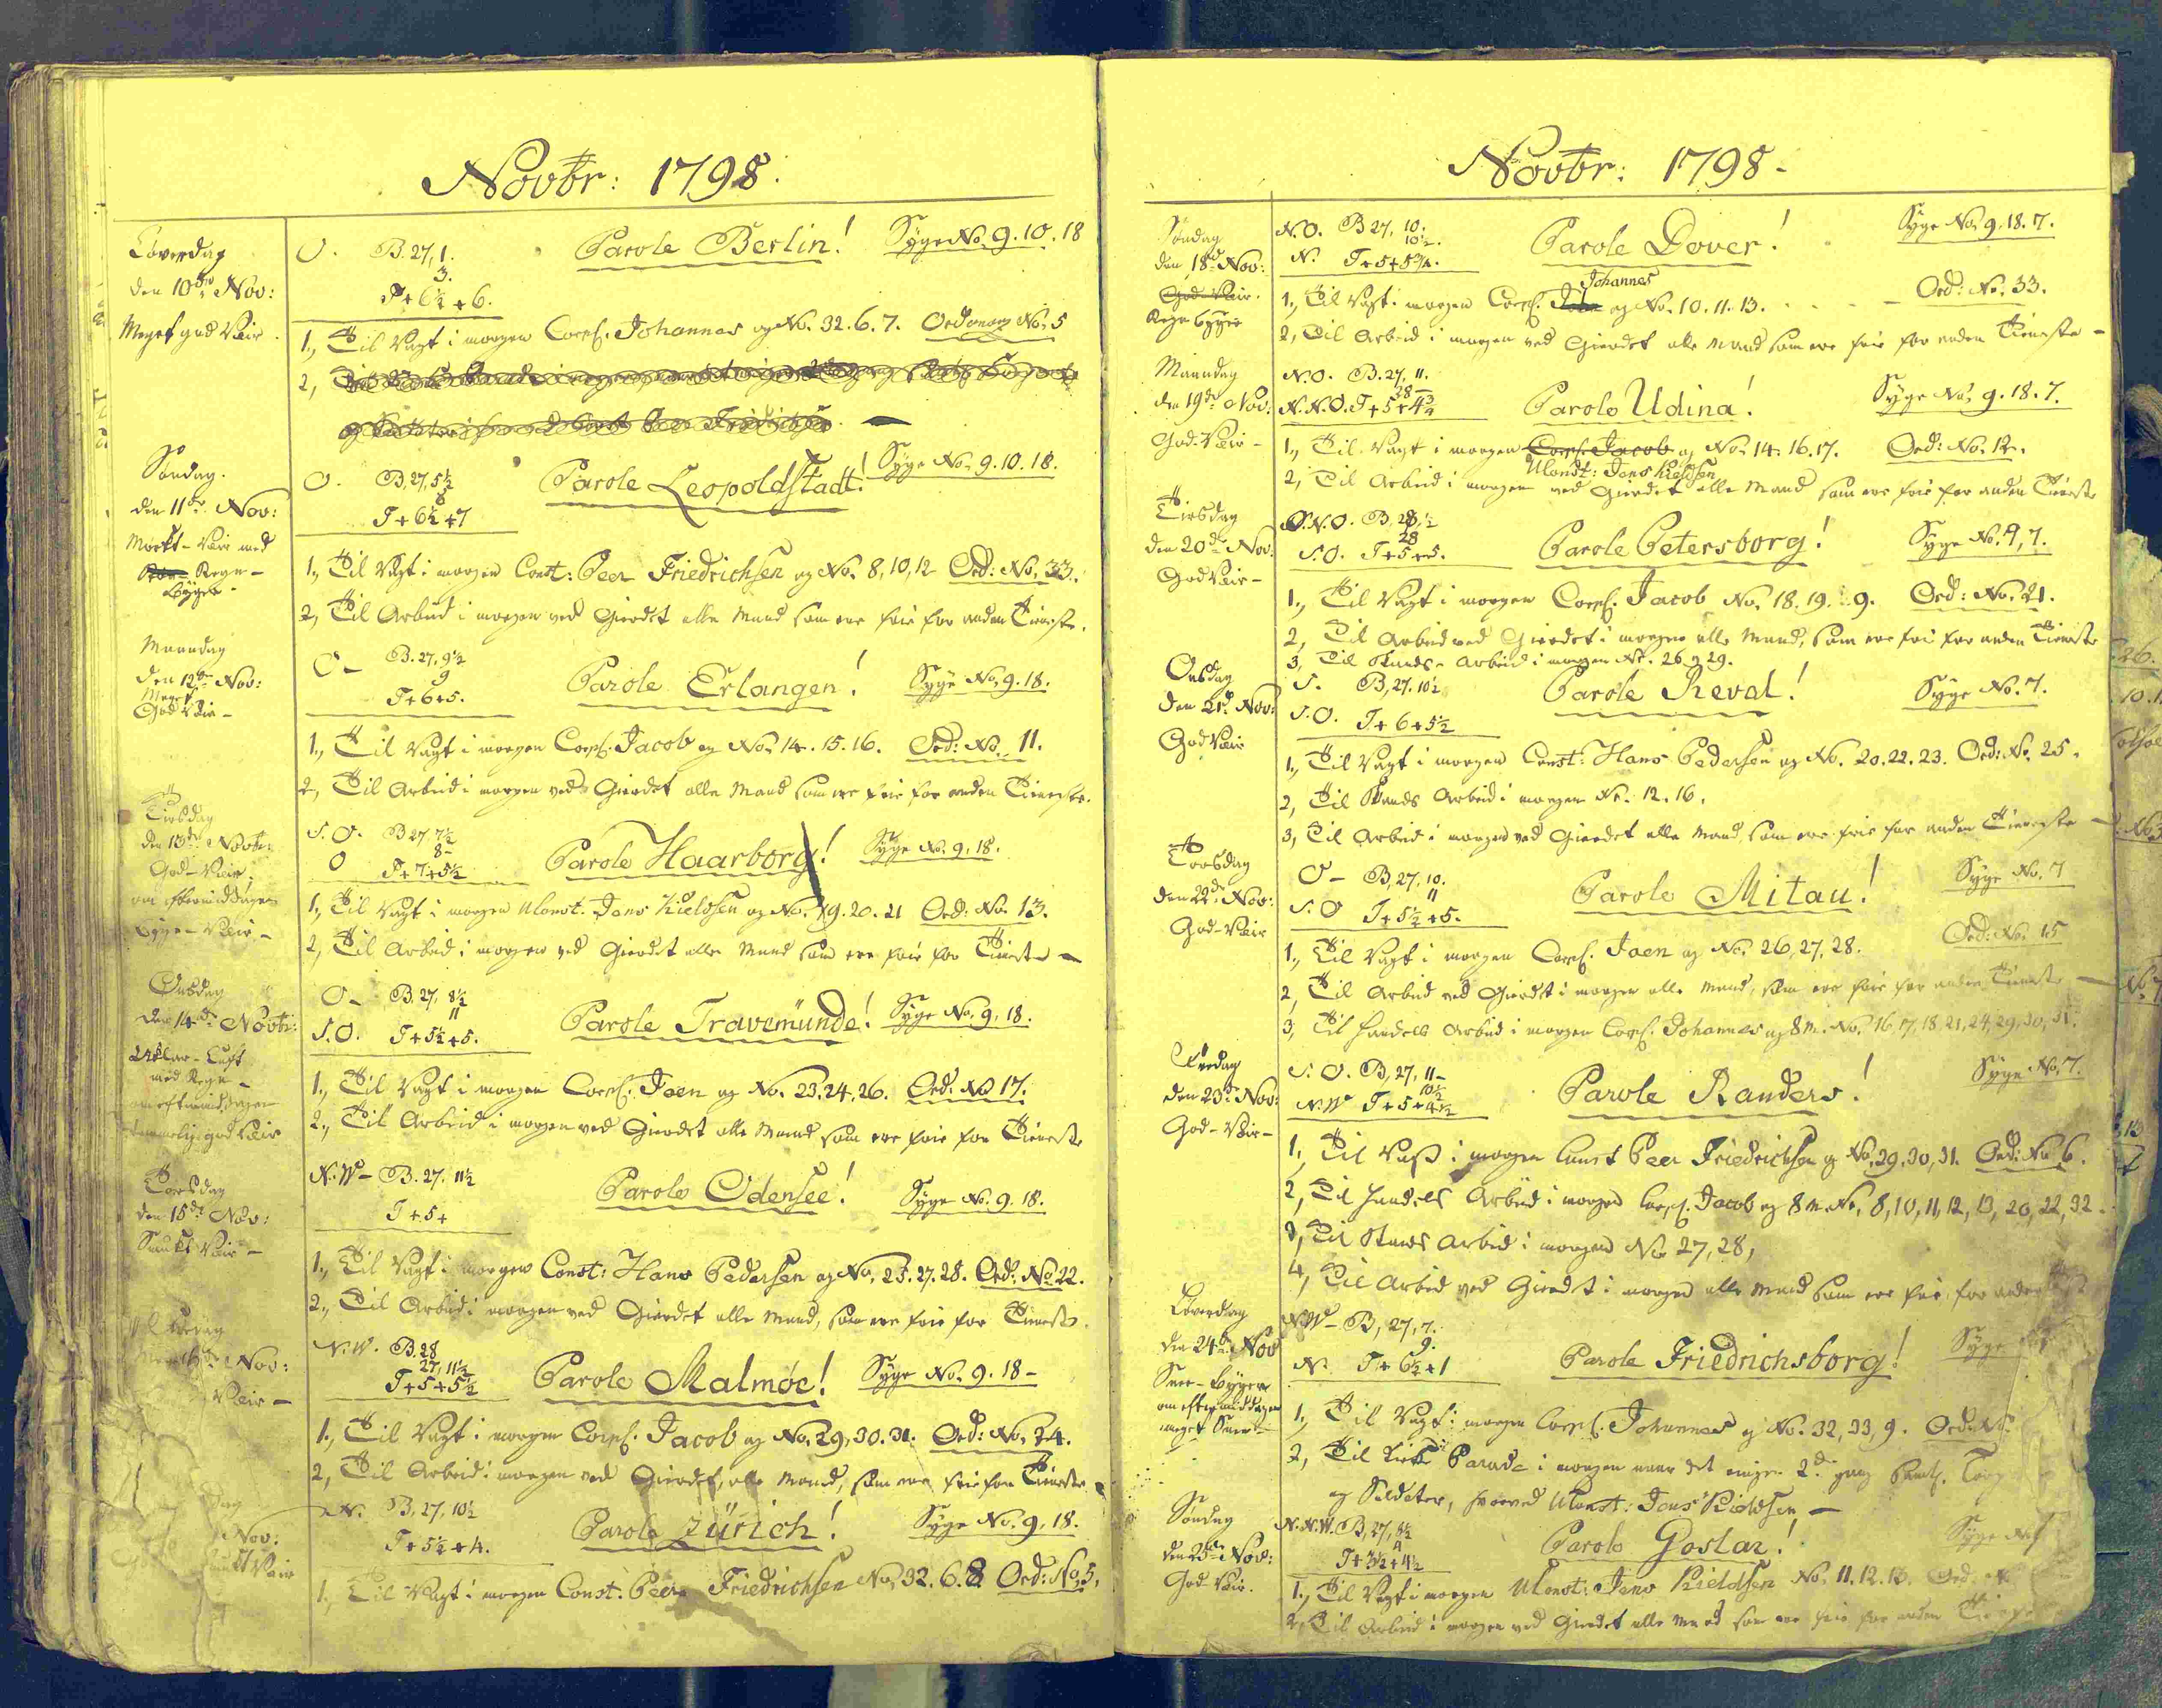 Novbr: 1798.
Löverdag
den 10de Nov:
Meget god Veir
O. B. 27, 1.
3.
T + 6½ + 6.
Parole Berlin!
Syge No. 9. 10. 18
1., Til Vagt i morgen Corpl. Johannes og No. 32. 6. 7. Ordonanz No. 5
2,
Söndag.
den 11te Nov:
Mörkt-Veir med
Regn-
Byger-
O. B, 27, 5½
6
T + 6½ + 7
Parole Leopoldstadt!
Syge No. 9. 10. 18.
1., Til Vagt i morgen Const: Peer Friedrichsen og No. 8, 10, 12 Ord: No. 33.
2, Til Arbeid i morgen ved Gierdet alle Mand som ere frie for anden Tieneste.
Maandag
den 12te Nov:
Meget
God Veir-
O- B. 27, 9½
9
T + 6 + 5.
Parole Erlangen!
Syge No. 9. 18.
1., Til Vagt i morgen Corpl. Jacob og No. 14. 15. 16. Ord: No. 11.
2, Til Arbeid i morgen ved Gierdet alle Mand som ere frie for anden Tieneste.
Tirsdag
den 13de Novbr:
God-Veir.
om eftermiddagen
Byge-Veir.-
S. O. B 27 7½
8-
O T + 7 + 5½
Parole Haarborg!
Syge No. 9. 18.
1., Til Vagt i morgen Uconst. Jens Kieldsen og No. 19. 20. 21 Ord: No. 13.
2, Til Arbeid i morgen ved Gierdet alle Mand som ere frie for Tieneste-
Onsdag
den 14de Novbr:
Uklar-Luft
med Regn-
om eftermiddagen
temmelig god Veir
O- B. 27, 8½
11
S. O. T + 5½ + 5.
Parole Travemünde!
Syge No. 9. 18.
1., Til Vagt i morgen Corpl. Jaen og No. 23. 24. 26. Ord: No 17.
2., Til Arbeid i morgen ved Gierdet alle Mand som ere frie for Tieneste
Torsdag
den 15de Nov:
Smukt Veir-
N. W- B. 27. 11½
T + 5 +
Parole Odensee!
Syge No. 9. 18.
1., Til Vagt i morgen Const: Hans Pedersen og No. 25. 27. 28. Ord: No 22.
2., Til Arbeid i morgen ved Gierdet alle Mand, som ere frie for Tieneste.
Nov:
Veir-
N. W. B. 28
27, 11½
T + 5 + 5½
Parole Malmöe!
Syge No. 9. 18-
1., Til Vagt i morgen Corpl. Jacob og No. 29, 30. 31. Ord: No. 24.
2, Til Arbeid i morgen ved Gierdet, alle Mand, som ere frie for Tieneste
Nov:
Smukt Veir
N. B, 27, 10½
T + 5½ + 4.
Parole Zürich!
Syge No. 9. 18.
1., Til Vagt i morgen Const. Peer Friedrichsen No. 32. 6. 8. Ord: No. 5,
Novbr: 1798-
Söndag
den 18de Nov:
God Veir.
Regn Byger
N. O. B 27, 10.
10½.
N. T + 5 + 5¾.
Parole Dover!
Syge No. 9. 18. 7.
Johannes
1., Til Vagt i morgen Corpl. Jaen og No. 10. 11. 13. Ord: No. 33.
2, Til Arbeid i morgen ved Gierdet alle Mand som ere frie for anden Tieneste-
Maandag
den 19de Nov:
God-Veir-
N. O. B. 27, 11.
28-
N. N. O. T + 5 + 4¾
Parole Udina!
Syge No. 9. 18. 7.
1., Til Vagt i morgen Corpl. Jacob og No. 14. 16. 17. Ord: No. 12.
Uconst: Jens Kieldsen
2, Til Arbeid i morgen ved Gierdet alle Mand som ere frie for anden Tieneste
Tirsdag
den 20de Nov:
God Veir-
S. N. O. B, 28, ½
28
S. O. T + 5 + 5.
Parole Petersborg!
Syge No. 9, 7.
1., Til Vagt i morgen Corpl. Jacob No. 18. 19. 9. Ord: No. 21.
2, Til Arbeid ved Gierdet i morgen alle Mand, som ere fri for anden Tieneste
3, Til Stands-Arbeid i morgen No. 26 29.
Onsdag
den 21de Nov:
God Veir
S. B, 27. 10½
S. O. T + 6 + 5½
Parole Reval!
Syge No. 7.
1., Til Vagt i morgen Const: Hans Pedersen og No. 20. 22. 23. Ord: No. 25.
2, Til Stands Arbeid i morgen No. 12. 16.
3, Til Arbeid i morgen ved Gierdet alle Mand, som ere frie for anden Tieneste-
Torsdag
den 22de Nov:
God-Veir
O- B, 27, 10.
11
S. O T + 5½ + 5.
Parole Mitau!
Syge No. 7
1., Til Vagt i morgen Corpl. Jaen og No. 26, 27, 28. Ord: No. 15
2, Til Arbeid ved Gierdet i morgen alle Mand, som ere frie for anden Tieneste-
3, Til Handels Arbeid i morgen Corpl. Johannes og 8 M. No. 16, 17, 18, 21, 24, 29, 30, 31.
Fredag
den 23de Nov:
God-Veir-
S. O. B, 27, 11-
10½
N. W T + 5 + 4½
Parole Randers!
Syge No. 7.
1., Til Vagt i morgen Const Peer Friedrichsen og No. 29. 30, 31. Ord: No. 6.
2, Til Handels Arbeid i morgen Corpl. Jacob og 8 M. No. 8, 10, 11, 12, 13, 20, 22, 32.
3, Til Stands Arbeid i morgen No 27, 28,
4, Til Arbeid ved Gierdet i morgen alle Mand som ere frie for anden
Löverdag
den 24de Nov
Snee-Byger
om eftermiddagen
meget Snee-
N. W- B, 27, 7.
9.
N. T + 6½ + 1
Parole Friedrichsborg!
Syge
1., Til Vagt i morgen Corpl. Johannes og No. 32, 33, 9. Ord: No.
2, Til Kirke Parade i morgen naar det ringer 2de gang
og Soldater, hvorved Uconst: Jens Kieldsen-
Söndag
den 25de Nov:
God-Veir.
N. N. W. B, 27, 8½
9
T + 3½ + 4½
Parole Goslar!
Syge No
1., Til Vagt i morgen Uconst: Jens Kieldsen No. 11. 12. 13. Ord.
2, Til Arbeid i morgen ved Gierdet alle Mand som ere frie for anden